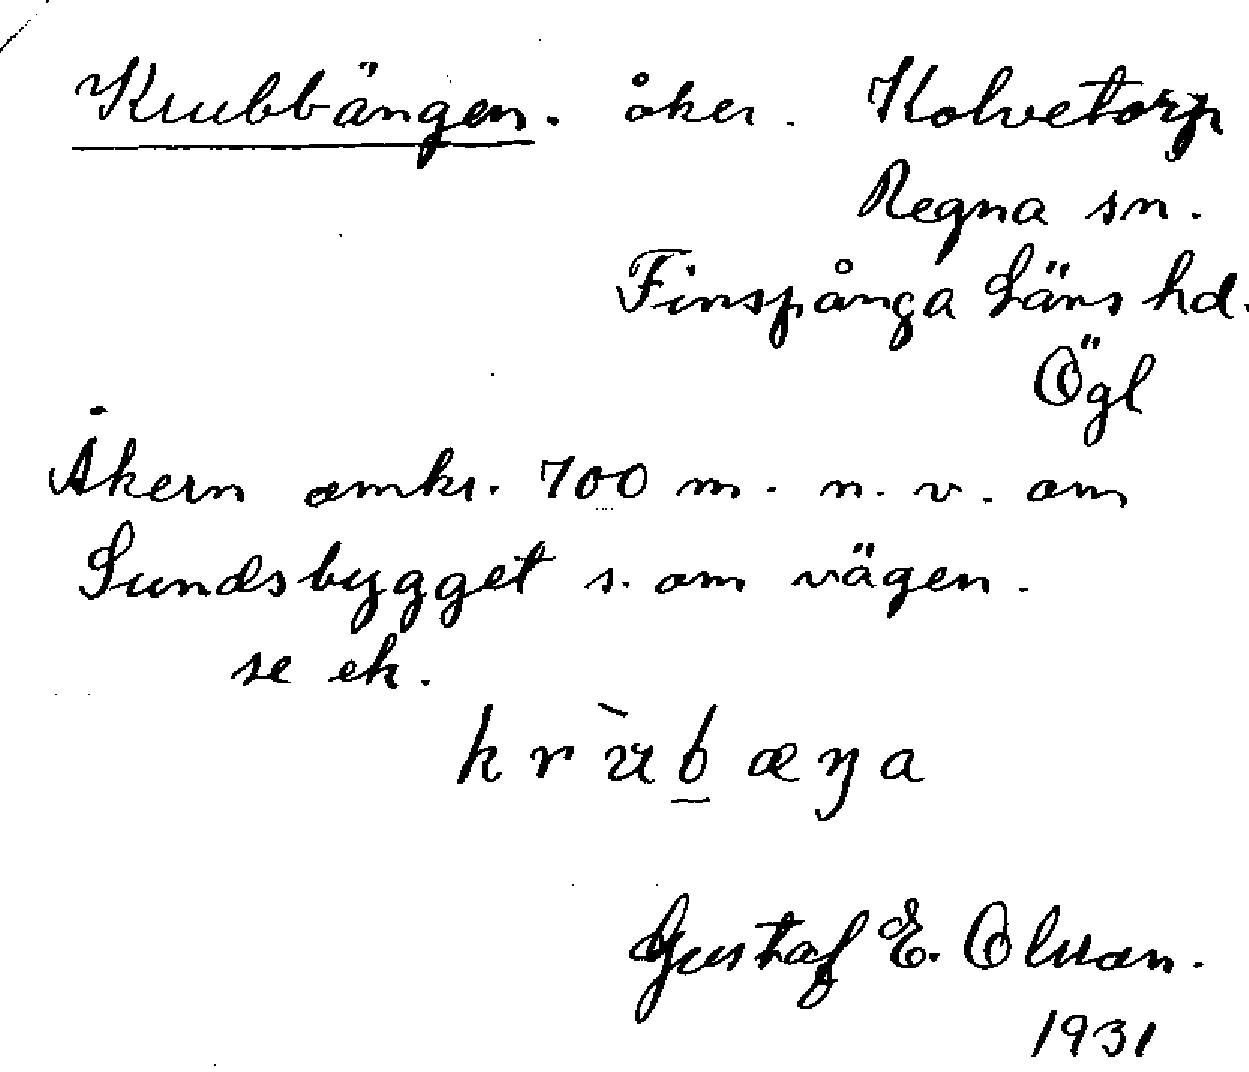 Krubbängen. åker. Kolvetorp
Regna sn.
Finspånga Läns hd.
Ögl
Åkern omkr. 700 m. n. v. om
Sundsbygget s. om vägen.
se ek.
krùbæŋa
Gustaf E. Olsson.
1931